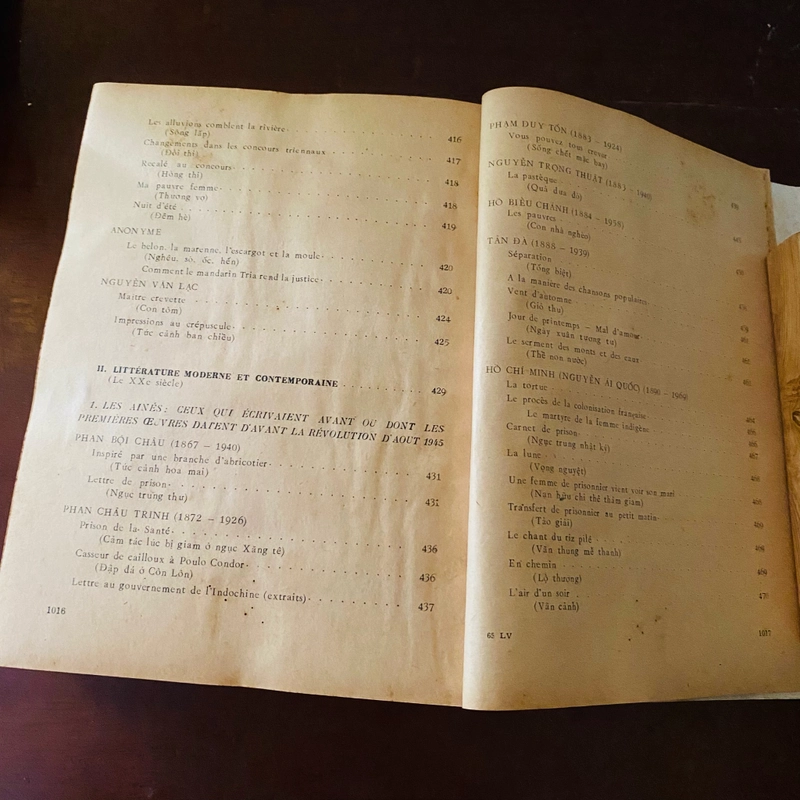 Les alluvions comblent la rivière . . . . . . . . . . . . . 416
(Sông lấp)
Changements dans les concours triennaux . . . . . . . . . 417
(Đổi thi)
Recalé au concours . . . . . . . . . . . . . . . . 418
(Hỏng thi)
Ma pauvre femme . . . . . . . . . . . . . . . . 418
(Thương vợ)
Nuit d'été . . . . . . . . . . . . . . . . . . 419
(Đêm hè)
ANONYME
Le belon, la marenne, l'escargot et la moule . . . . . . . . 420
(Nghêu, sò, ốc, hến)
Comment le mandarin Tria rend la justice . . . . . . . . . 420
NGUYỄN VĂN LẠC
Maître crevette . . . . . . . . . . . . . . . . . 424
(Con tôm)
Impressions au crépuscule . . . . . . . . . . . . . . 425
(Tức cảnh ban chiều)
II. LITTÉRATURE MODERNE ET CONTEMPORAINE . . . . . . . . 429
(Le XXe siècle)
1. LES AINÉS : CEUX QUI ÉCRIVAIENT AVANT OU DONT LES
PREMIÈRES ŒUVRES DATENT D'AVANT LA RÉVOLUTION D'AOUT 1945
PHAN BỘI CHÂU (1867 – 1940)
Inspiré par une branche d'abricotier . . . . . . . . . . . 431
(Tức cảnh hoa mai)
Lettre de prison . . . . . . . . . . . . . . . . . 431
(Ngục trung thư)
PHAN CHÂU TRINH (1872 – 1926)
Prison de la Santé . . . . . . . . . . . . . . . . 436
(Cảm tác lúc bị giam ở ngục Xăng tê)
Casseur de cailloux à Poulo Condor . . . . . . . . . . . 436
(Đập đá ở Côn Lôn)
Lettre au gouvernement de l'Indochine (extraits) . . . . . . . 437
1016
PHẠM DUY TỐN (1883 – 1924)
Vous pouvez tous crever
(Sống chết mặc bay)
NGUYỄN TRỌNG THUẬT (1883 – 1940)
La pastèque
(Quả dưa đỏ)
HỒ BIỂU CHÁNH (1884 – 1958)
Les pauvres
(Con nhà nghèo)
TẢN ĐÀ (1888 – 1939)
Séparation
(Tống biệt)
A la manière des chansons populaires
Vent d'automne
(Gió thu)
Jour de printemps – Mal d'amour
(Ngày xuân tương tư)
Le serment des monts et des eaux
(Thề non nước)
HỒ CHÍ MINH (NGUYỄN ÁI QUỐC) (1890 – 1969)
La tortue
Le procès de la colonisation française
Le martyre de la femme indigène
Carnet de prison
(Ngục trung nhật ký)
La lune
(Vọng nguyệt)
Une femme de prisonnier vient voir son mari
(Nạn hữu chi thê thám giam)
Transfert de prisonnier au petit matin
(Tảo giải)
Le chant du riz pilé
(Văn thung mễ thanh)
En chemin . . . . . . . . . . . . . . . . . 469
(Lộ thượng)
L'air d'un soir . . . . . . . . . . . . . . . . 470
(Vãn cảnh)
65 LV 1017